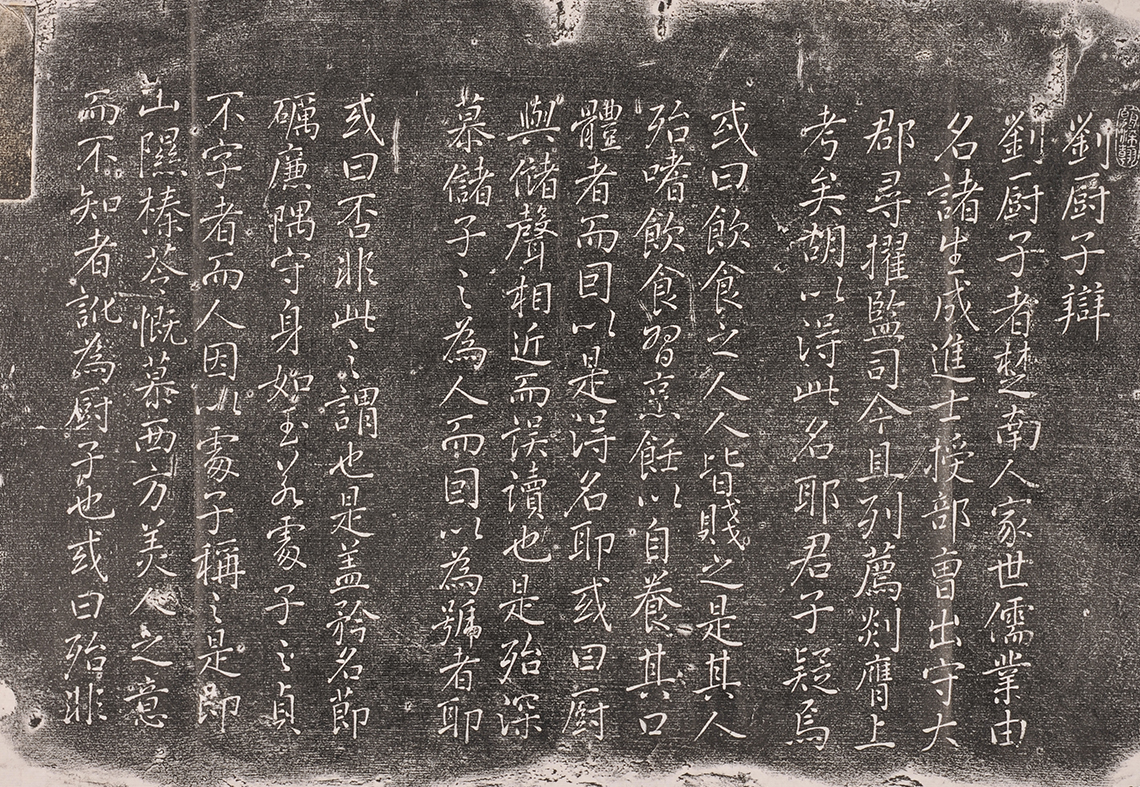 劉厨子辯
劉厨子者楚南人家世儒業由
名諸生成進士授部曹出守大
郡尋擢監司今且列薦剡膺上
考矣胡以淂此名耶君子疑焉
或曰飲食之人人皆賤之是其人
殆嗜飲食習烹飪以自養其口
體者而因以是淂名耶或曰厨
與儲聲相近而误讀也是殆深
慕儲子之為人而因以為號者耶
或曰否非此之謂也是盖矜名節
礪廉隅守身如玉若處子之貞
不字者而人因以處子稱之是即
山隰榛苓慨慕西方美人之意
而不知者訛為厨子也或曰殆非